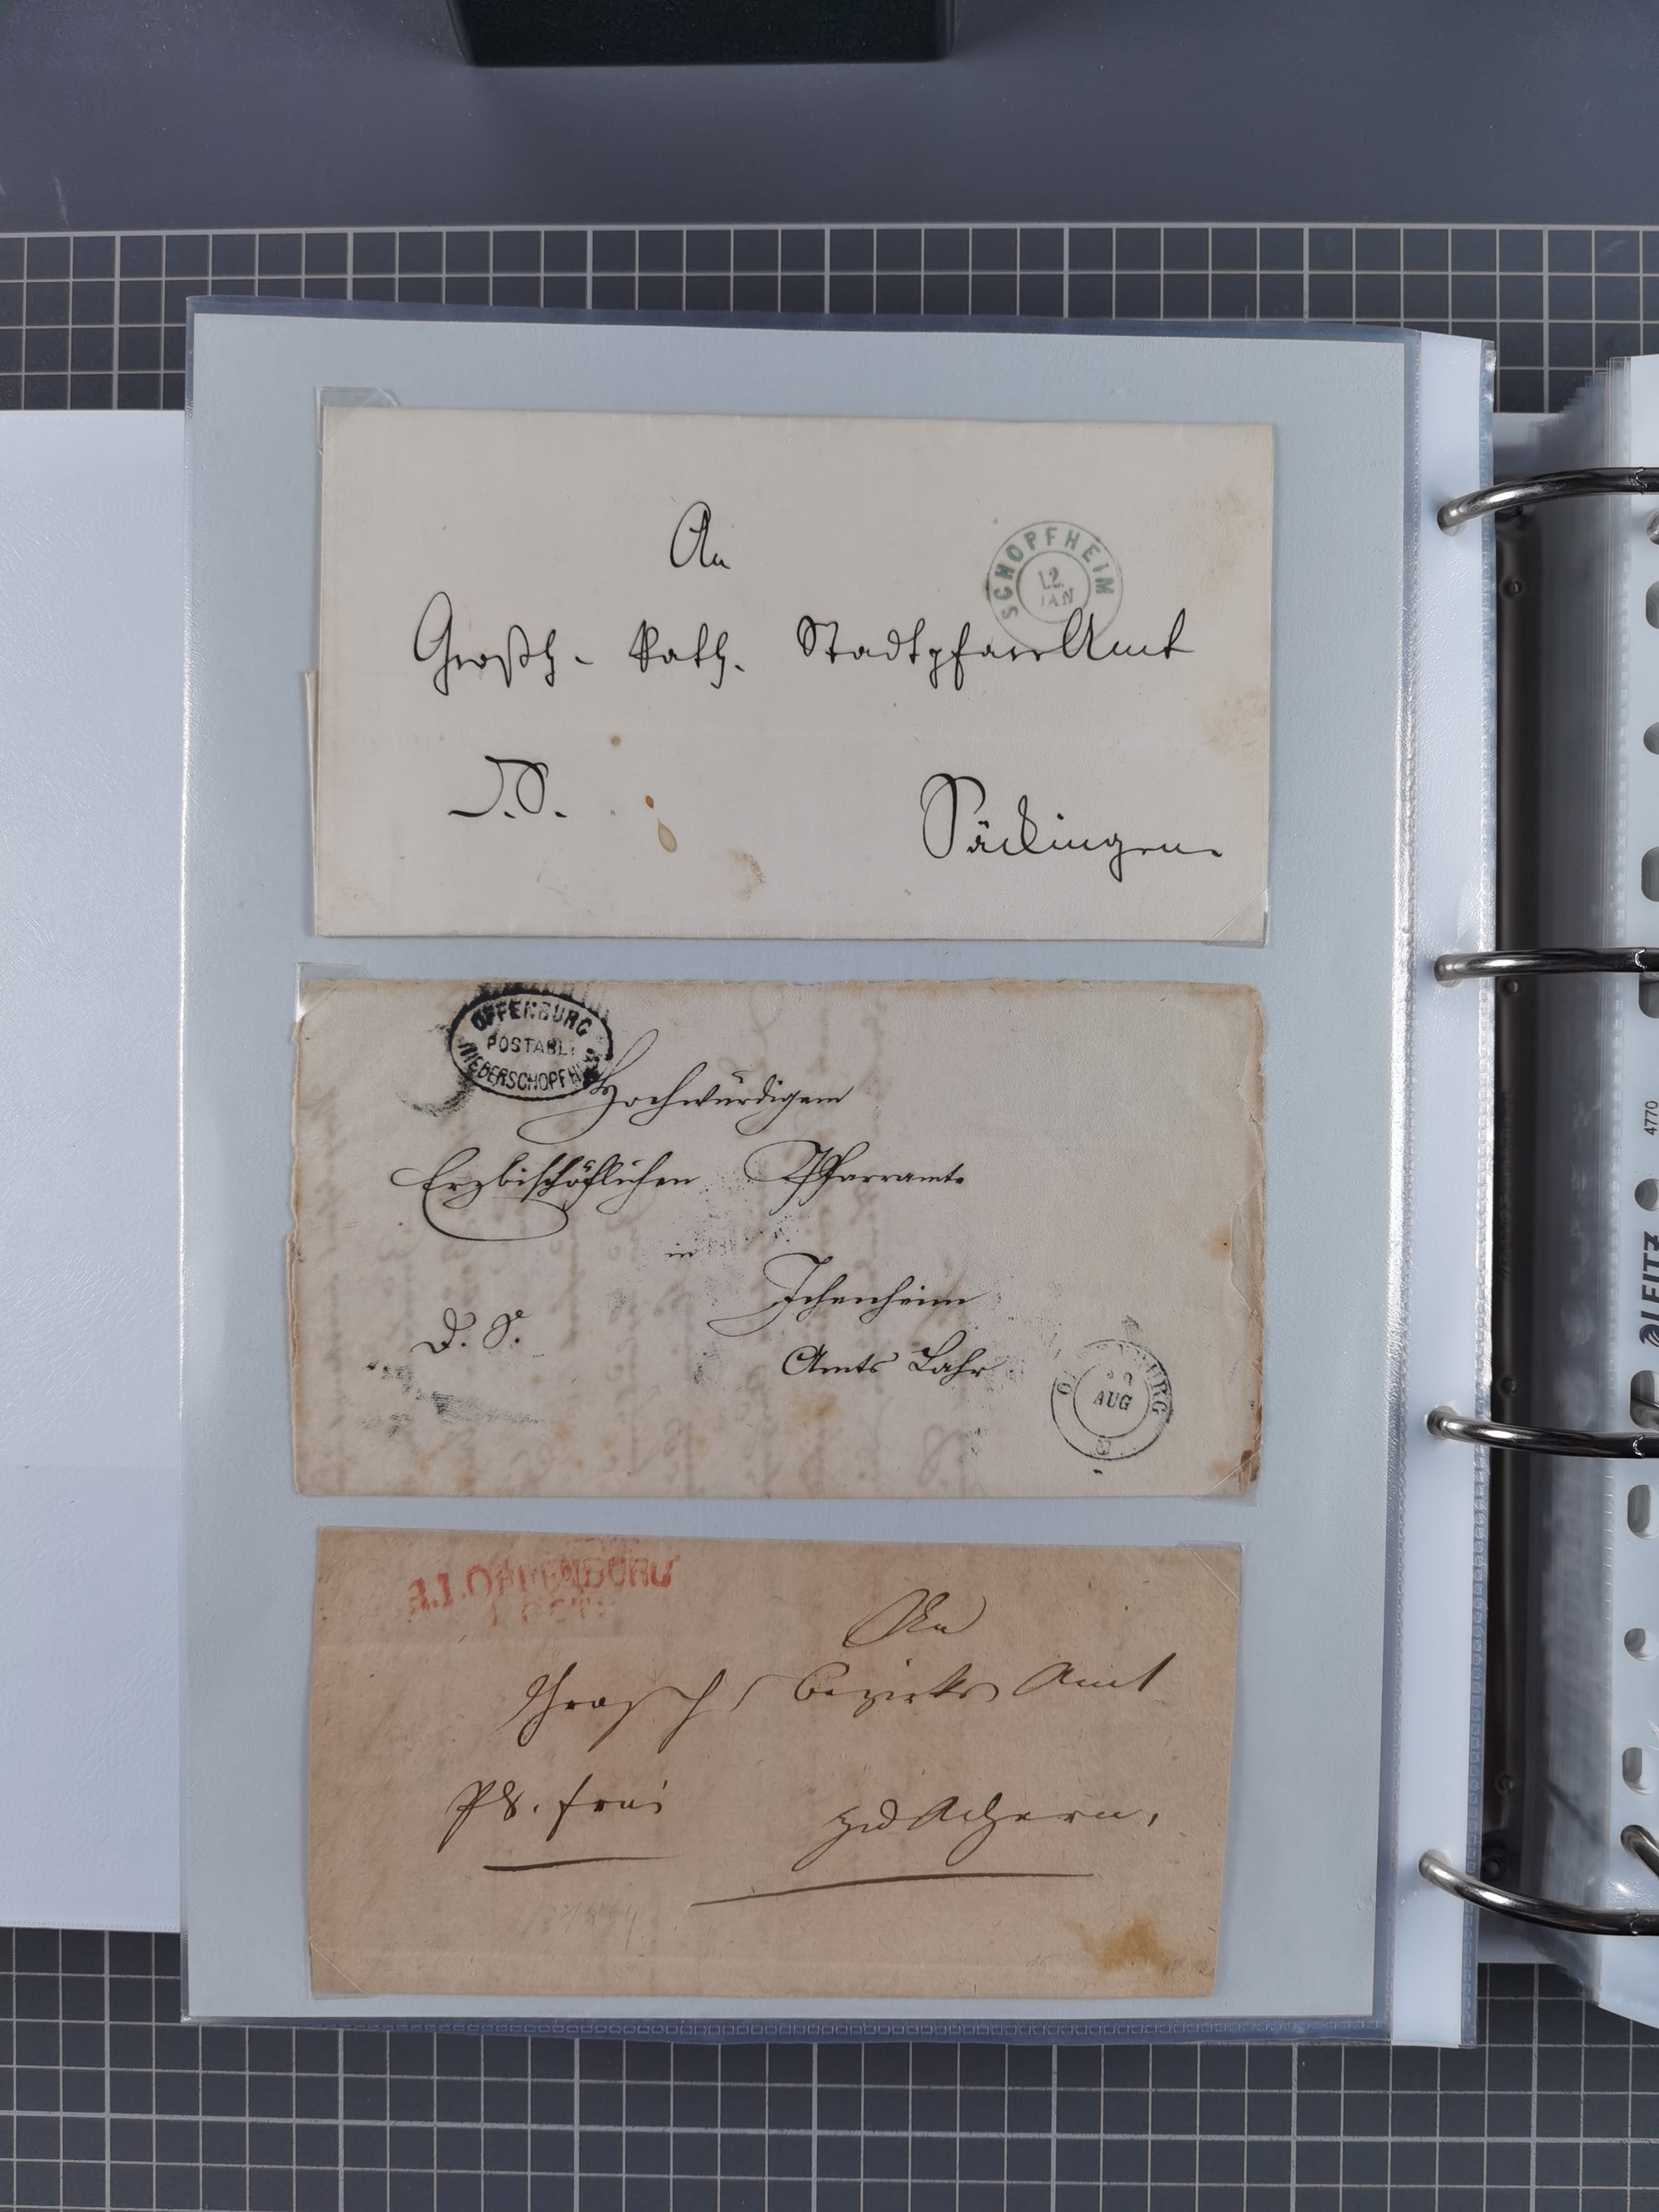 An
SCHOPFHEIM
12
JAN
Großh. Kath. StadtpfarrAmt
D.S.
Säckingen
OFFENBURG
POSTABL.
NIEDERSCHOPFHM
Hochwürdigem
Erzbischöflichen Pfarramte
in
Ichenheim
D. S.
Amts Lahr
AUG
R.1.OFFENBURG
An
Grosh / Bezirks Amt
PS. frei
zu Achern,
4770
LEITZ